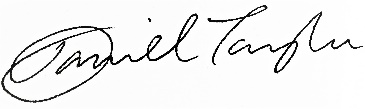 Daniel Taylor